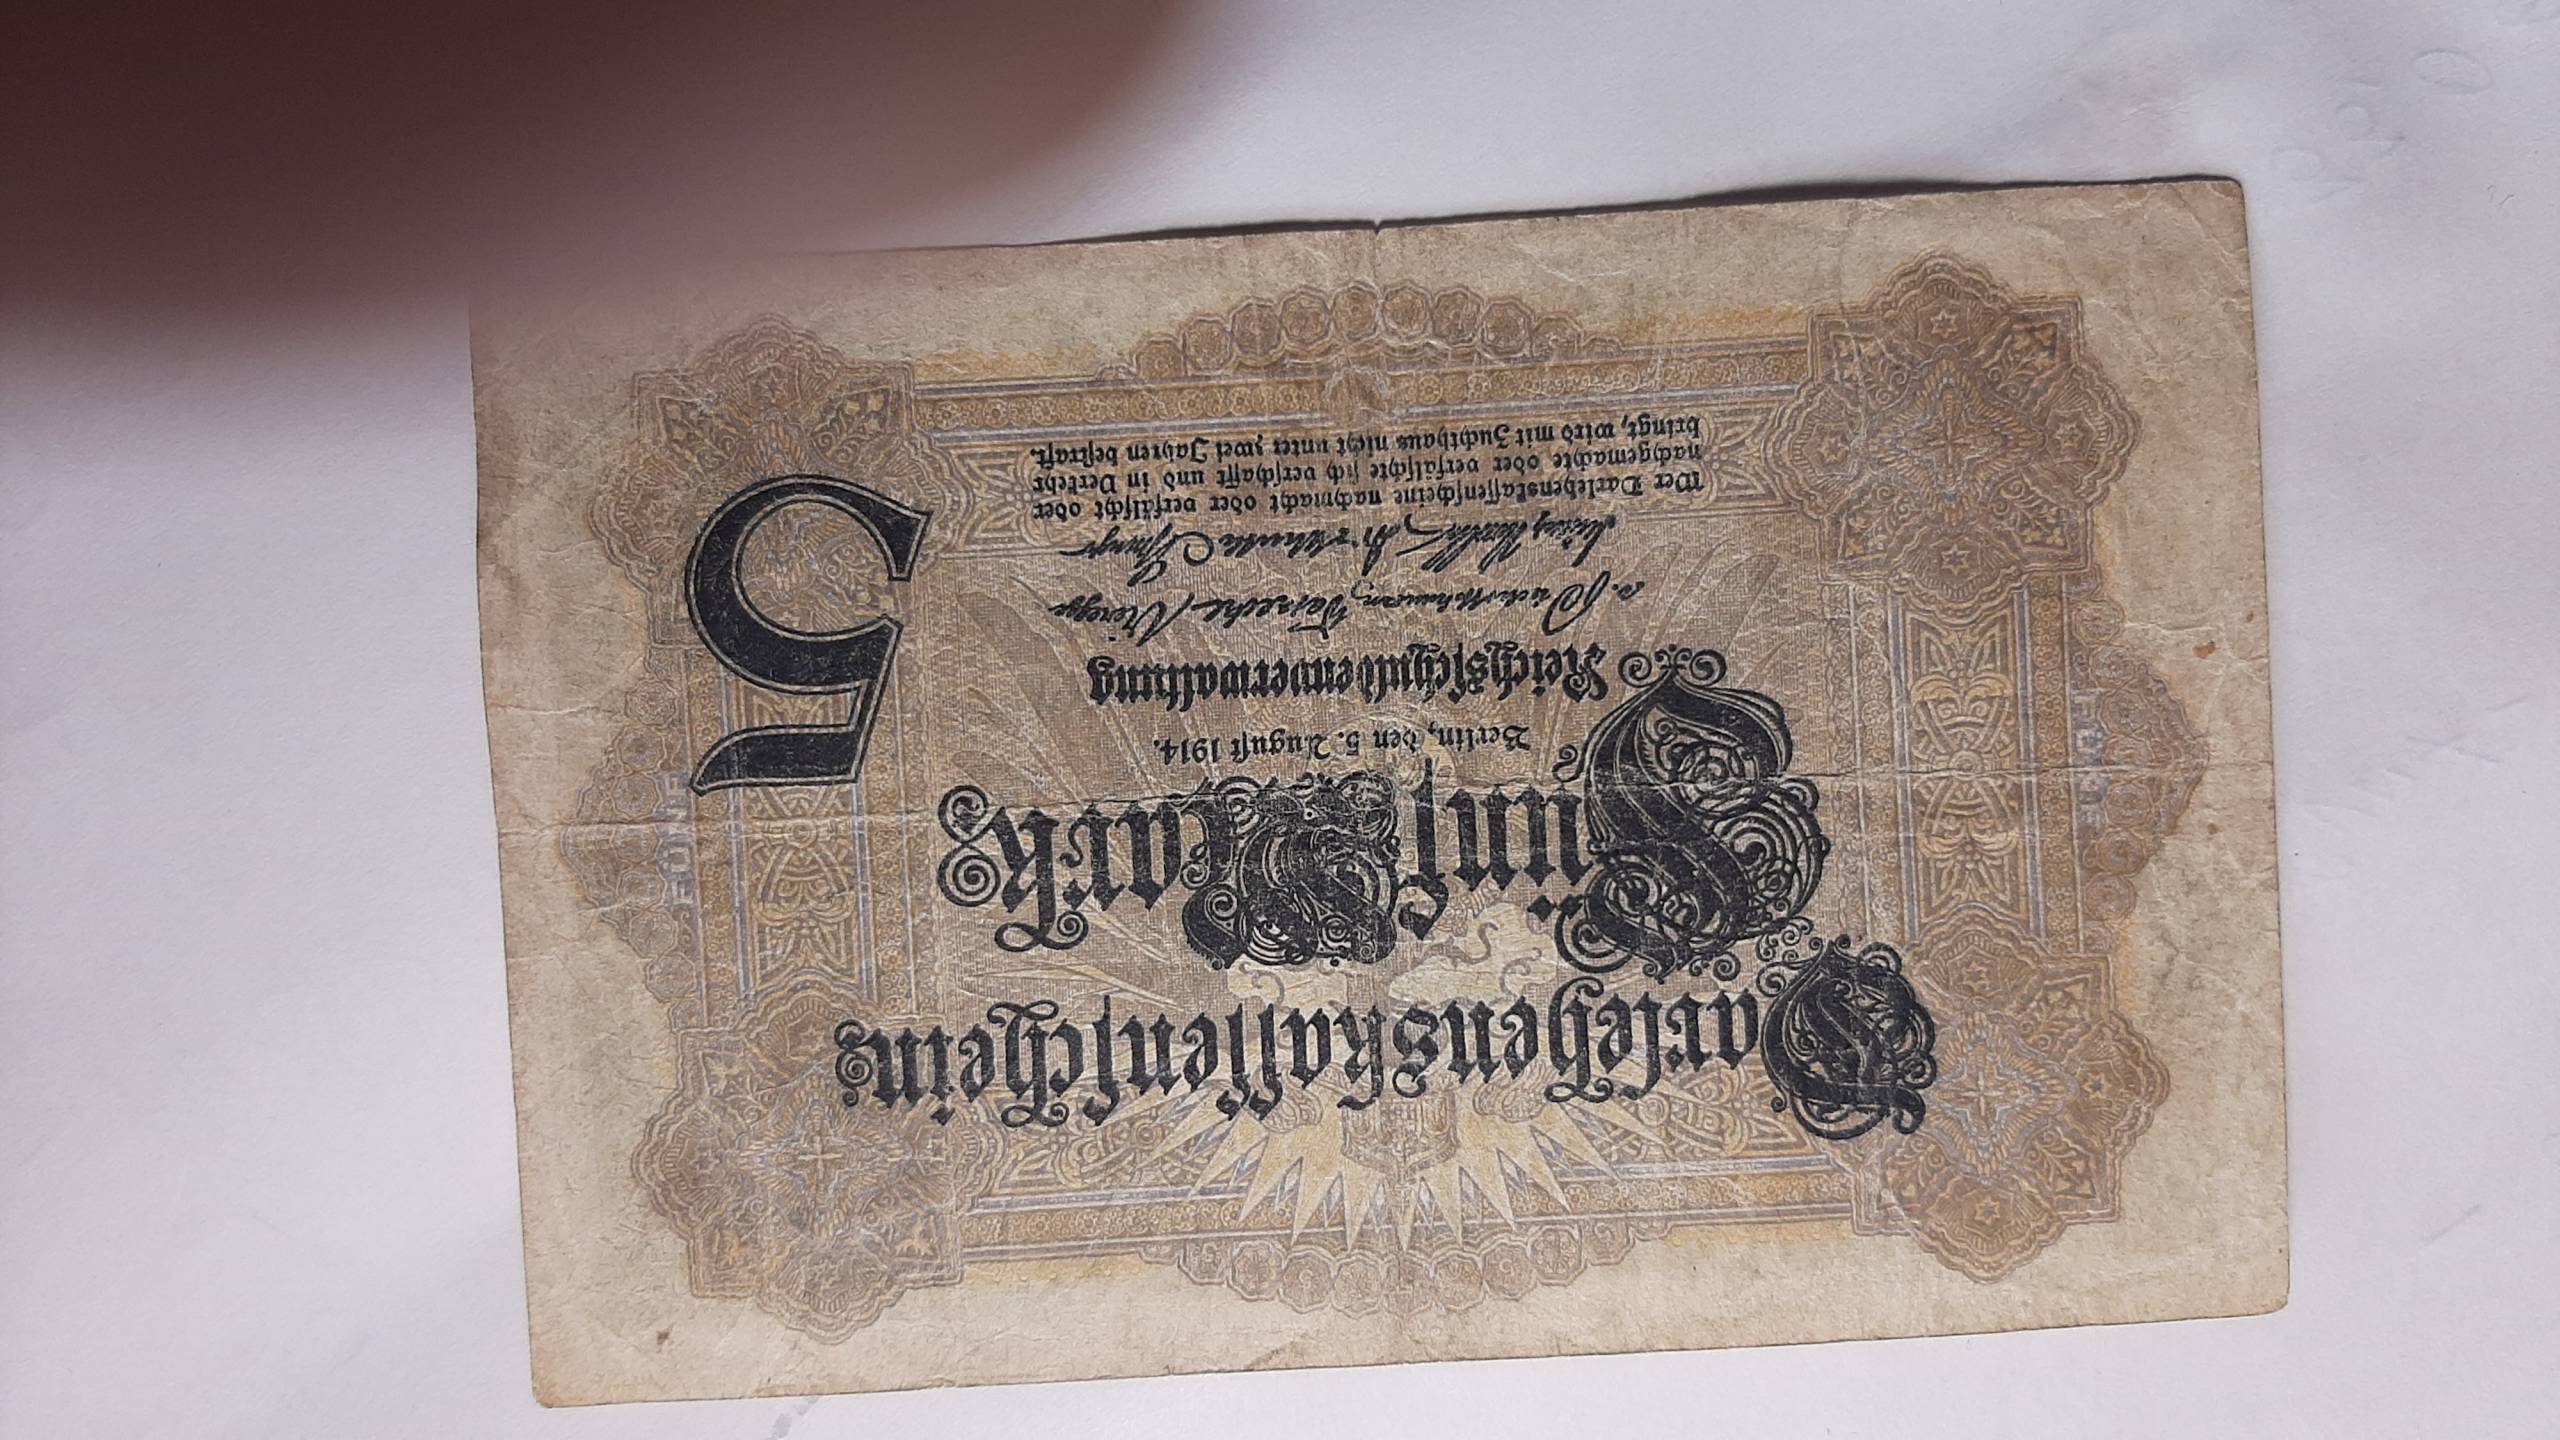 Darlehenskassenschein
Fünf Mark
Berlin, den 5. August 1914.
Reichsschuldenverwaltung
5
Wer Darlehenskassenscheine nachmacht oder verfälscht oder
nachgemachte oder verfälschte sich verschafft und in Verkehr
bringt, wird mit Zuchthaus nicht unter zwei Jahren bestraft.
FÜNF
FÜNF